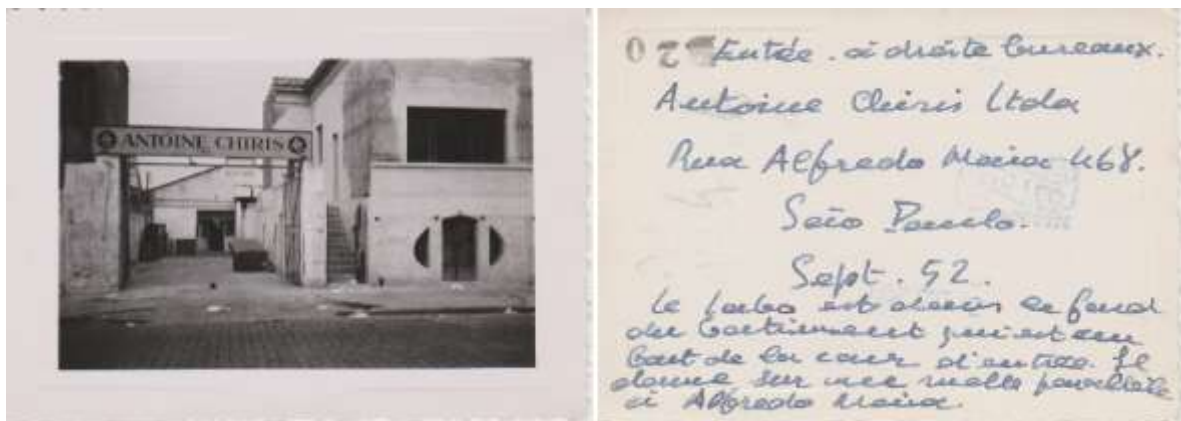 ANTOINE CHIRIS
Entrée. à droite bureaux.
Antoine Chiris Ltda
Rua Alfredo Maia 468.
São Paulo.
Sept. 52.
Le labo est dans le fond
du batiment qui est au
bout de la cour d'entrée. Il
donne sur une ruelle parallèle
à Alfredo Maia.